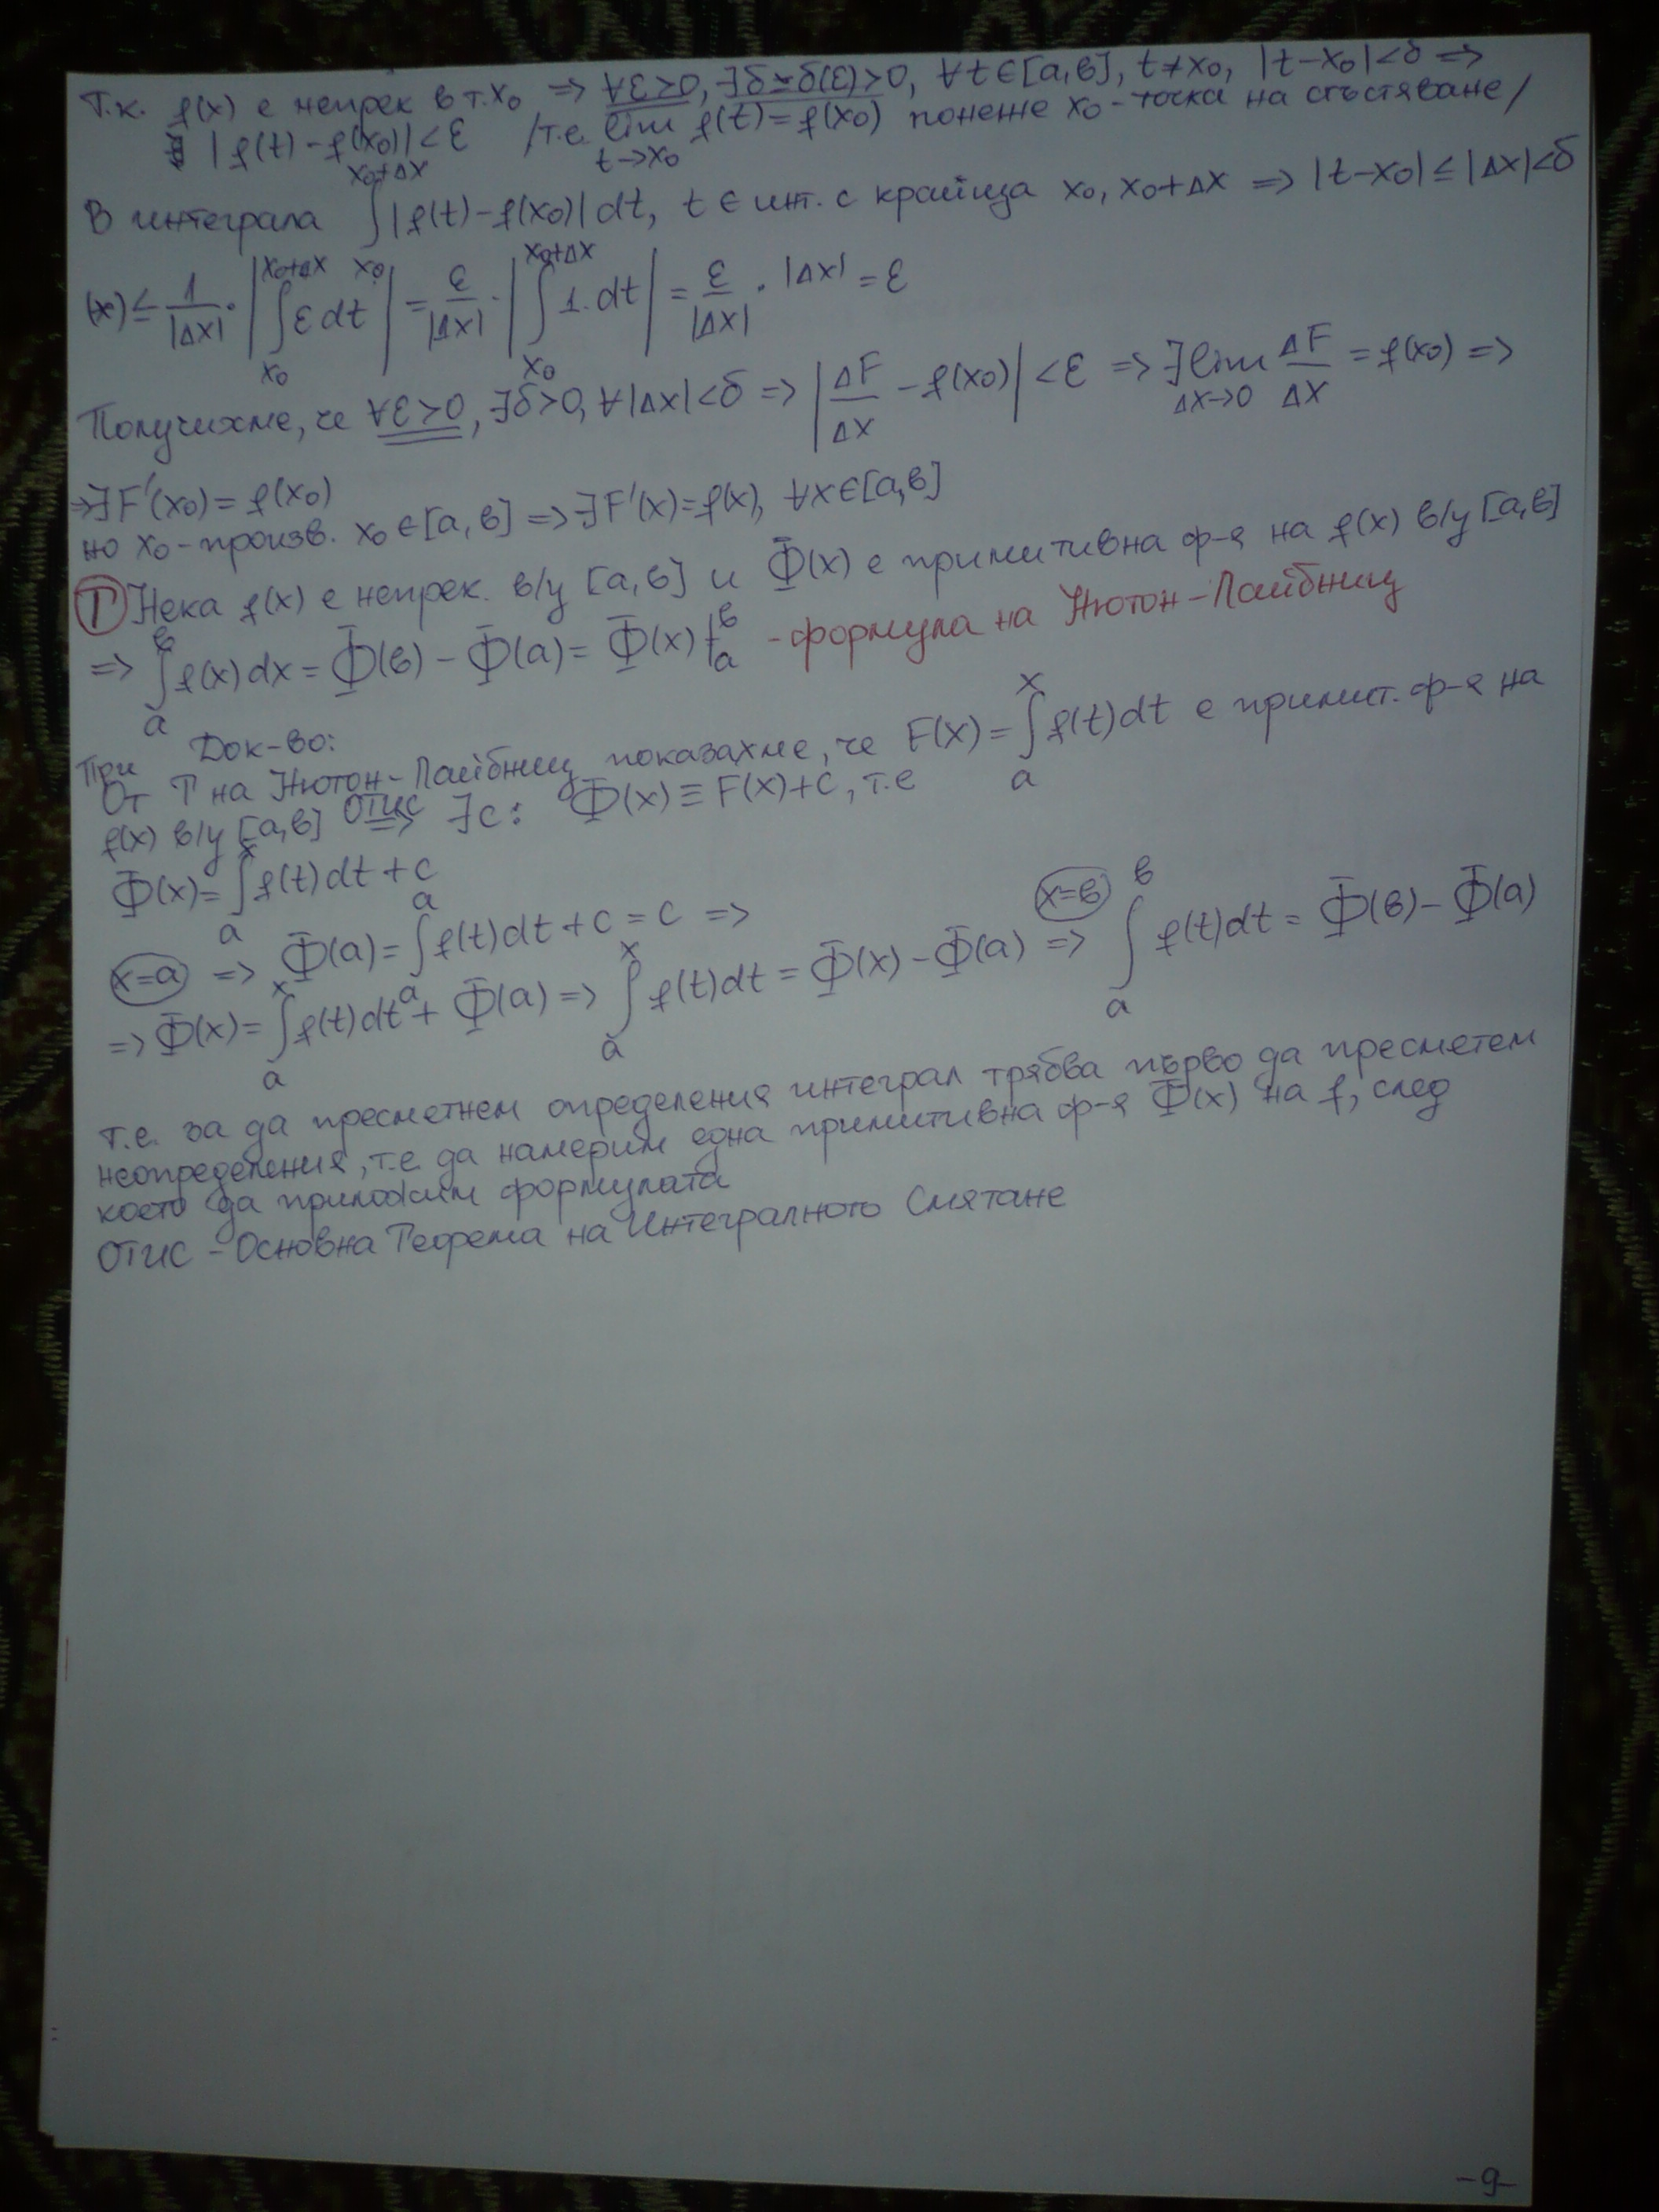 Т.к. f(x) е непрек в т.x₀ => ∀ε>0, ∃δ=δ(ε)>0, ∀t∈[a,в], t≠x₀, |t-x₀|<δ =>
|f(t)-f(x₀)|<ε /т.е. lim_{t->x₀} f(t)=f(x₀) понеже x₀-точка на сгъстяване/
В интеграла ∫_{x₀}^{x₀+Δx} |f(t)-f(x₀)|dt, t∈инт. с крайща x₀, x₀+Δx => |t-x₀|≤|Δx|<δ
(*)≤ 1/|Δx| · |∫_{x₀}^{x₀+Δx} ε dt| = ε/|Δx| · |∫_{x₀}^{x₀+Δx} 1.dt| = ε/|Δx| · |Δx| = ε
Получихме, че ∀ε>0, ∃δ>0, ∀|Δx|<δ => |ΔF/Δx - f(x₀)|<ε => ∃lim_{Δx->0} ΔF/Δx = f(x₀) =>
=>∃F'(x₀)=f(x₀)
но x₀-произв. x₀∈[a,в] => ∃F'(x)=f(x), ∀x∈[a,в]
Т Нека f(x) е непрек. в/у [a,в] и Φ(x) е примитивна ф-я на f(x) в/у [a,в]
=> ∫_a^в f(x)dx = Φ(в) - Φ(a) = Φ(x)|_a^в - формула на Нютон-Лайбниц
Док-во:
При
От Т на Нютон-Лайбниц показахме, че F(x)=∫_a^x f(t)dt е примит. ф-я на
f(x) в/у [a,в] =ОТИС=> ∃c: Φ(x)≡F(x)+c, т.е
Φ(x)=∫_a^x f(t)dt+c
x=a => Φ(a)=∫_a^a f(t)dt+c=c =>
=> Φ(x)=∫_a^x f(t)dt+Φ(a) => ∫_a^x f(t)dt=Φ(x)-Φ(a) =x=в=> ∫_a^в f(t)dt=Φ(в)-Φ(a)
т.е. за да пресметнем определения интеграл трябва първо да пресметем
неопределения, т.е да намерим една примитивна ф-я Φ(x) на f, след
което да приложим формулата
ОТИС - Основна Теорема на Интегралното Смятане
-9-